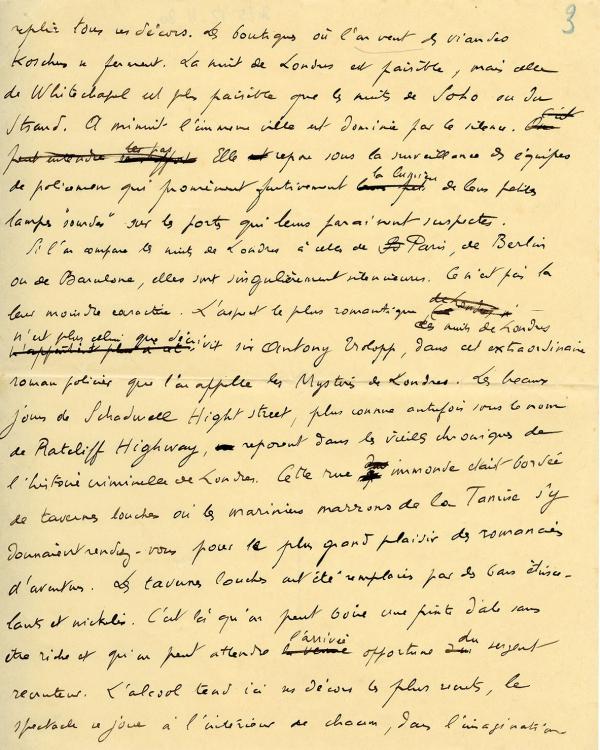 3
replie tous ses décors. Les boutiques où l'on vend des viandes
Kosches se ferment. La nuit de Londres est paisible, mais celle
de Whitechapel est plus paisible que les nuits de Soho ou du
Strand. A minuit l'immense ville est dominée par le silence.
peut entendre les pas Elle repose sous la surveillance des équipes
de policemen qui promènent furtivement la lumière de leurs petites
lampes "sourdes" sur les portes qui leurs paraissent suspectes.
Si l'on compare les nuits de Londres à celles de Paris, de Berlin
ou de Barcelone, elles sont singulièrement intérieures. Ce n'est pas là
leur moindre caractère. L'aspect le plus romantique de Londres
des nuits de Londres
n'est plus celui que décrivit sir Antony Trolopp, dans cet extraordinaire
roman policier que l'on appelle les Mystères de Londres. Les beaux
jours de Schadwell Hight street, plus connue autrefois sous le nom
de Ratcliff Highway, reposent dans les vieilles chroniques de
l'histoire criminelle de Londres. Cette rue immonde était bordée
de tavernes louches où les mariniers marrons de la Tamise s'y
donnaient rendez-vous pour le plus grand plaisir des romanciers
d'aventures. Les tavernes louches ont été remplacées par des bars étince-
lants et nickelés. C'est là qu'on peut boire une pinte d'ale sans
être riche et qu'on peut attendre la venue l'arrivée opportune du sergent
recruteur. L'alcool tend ici ses décors les plus secrets, le
spectacle se joue à l'intérieur de chacun, dans l'imagination